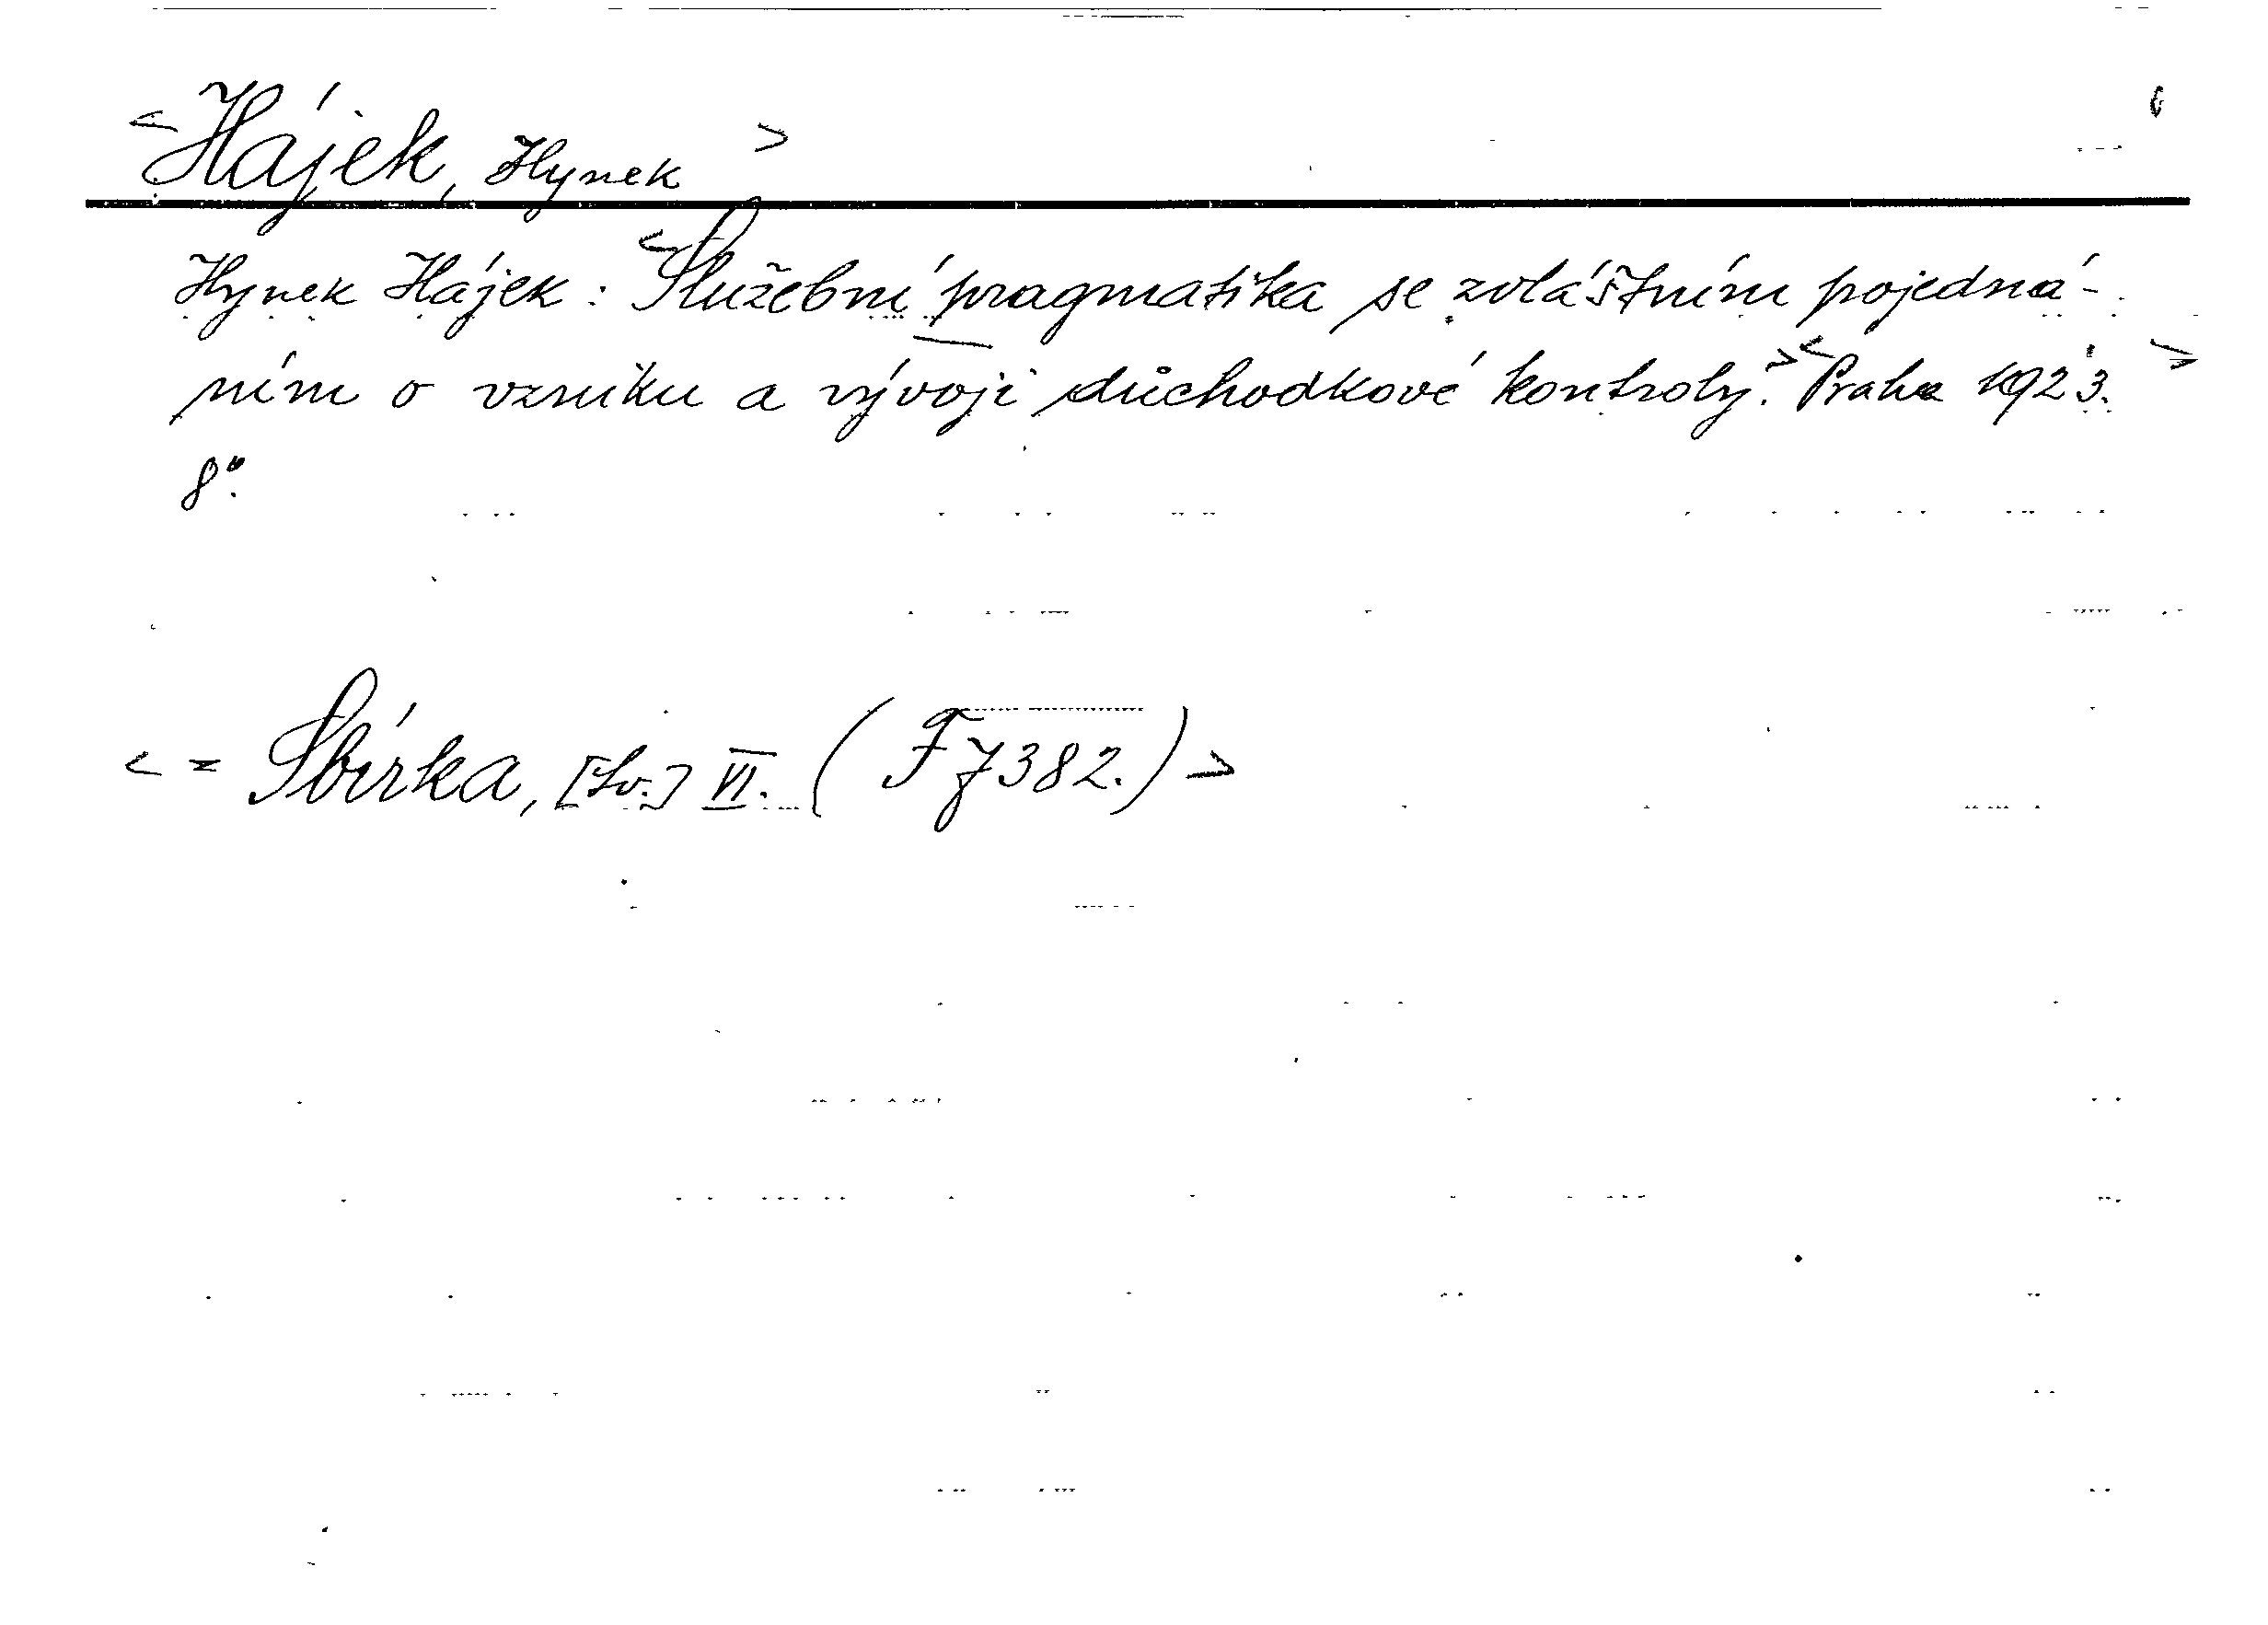 <Hájek, Hynek>
Hynek Hájek: <Služební pragmatika se zvláštním pojedná-
ním o vzniku a vývoji důchodkové kontroly.> <Praha 1923.>
8°.
<= Sbírka, [Sv.] VI. (F7382.)>